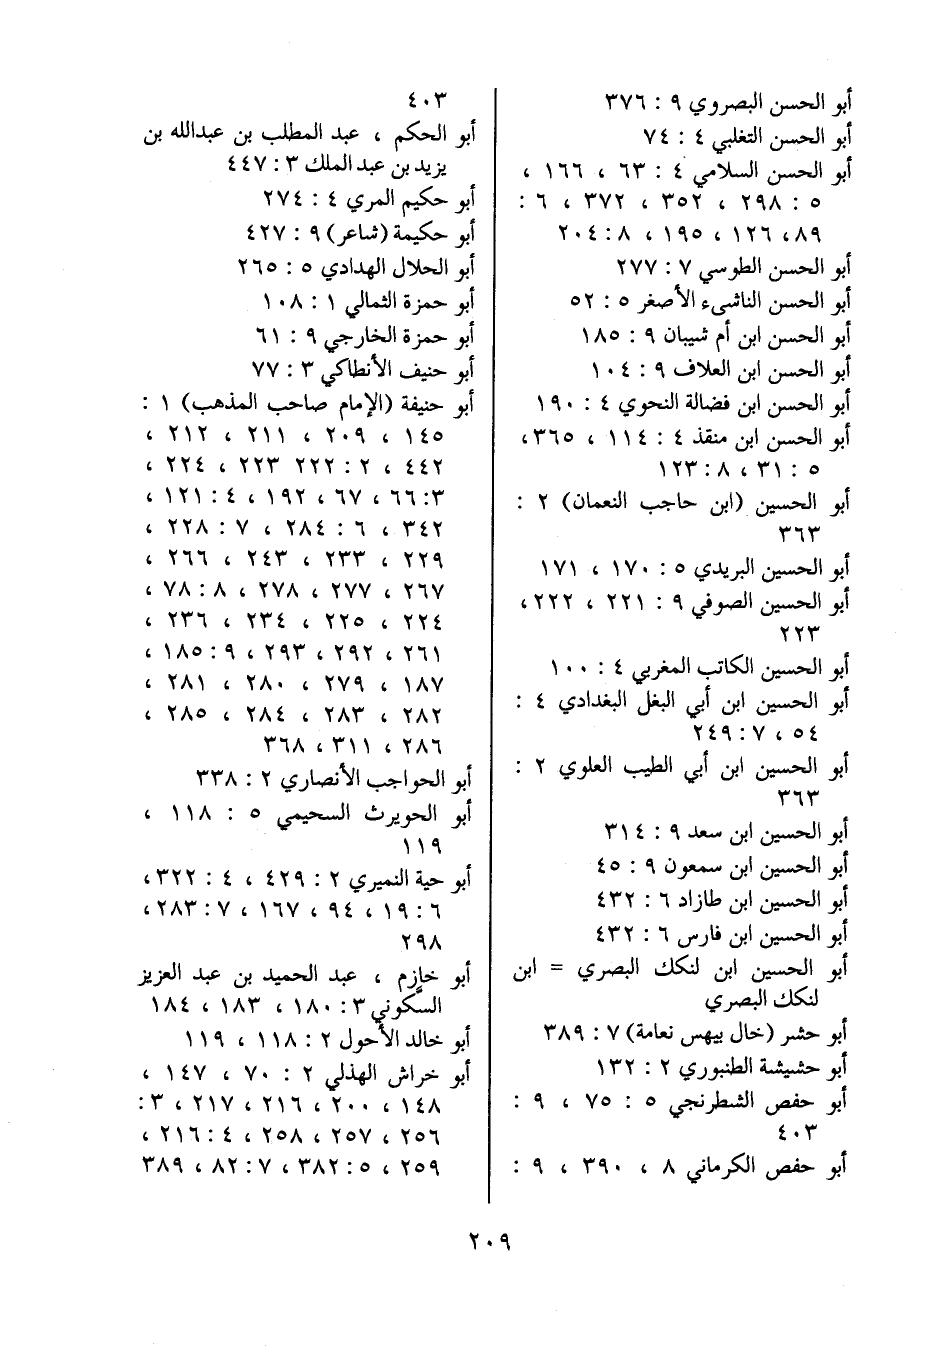 أبو الحسن البصروي ٩ : ٣٧٦
أبو الحسن التغلبي ٤ : ٧٤
أبو الحسن السلامي ٤ : ٦٣ ، ١٦٦ ،
٥ : ٢٩٨ ، ٣٥٢ ، ٣٧٢ ، ٦ :
٨٩، ١٢٦ ، ١٩٥ ، ٨: ٢٠٤
أبو الحسن الطوسي ٧ : ٢٧٧
أبو الحسن الناشىء الأصغر ٥ : ٥٢
أبو الحسن ابن أم شيبان ٩ : ١٨٥
أبو الحسن ابن العلاف ٩ : ١٠٤
أبو الحسن ابن فضالة النحوي ٤ : ١٩٠
أبو الحسن ابن منقذ ٤ : ١١٤ ، ٣٦٥،
٥ : ٣١ ، ٨ : ١٢٣
أبو الحسين (ابن حاجب النعمان) ٢ :
٣٦٣
أبو الحسين البريدي ٥ : ١٧٠ ، ١٧١
أبو الحسين الصوفي ٩ : ٢٢١ ، ٢٢٢،
٢٢٣
أبو الحسين الكاتب المغربي ٤ : ١٠٠
أبو الحسين ابن أبي البغل البغدادي ٤ :
٥٤ ، ٧ : ٢٤٩
أبو الحسين ابن أبي الطيب العلوي ٢ :
٣٦٣
أبو الحسين ابن سعد ٩ : ٣١٤
أبو الحسين ابن سمعون ٩ : ٤٥
أبو الحسين ابن طازاد ٦ : ٤٣٢
أبو الحسين ابن فارس ٦ : ٤٣٢
أبو الحسين ابن لنكك البصري = ابن
لنكك البصري
أبو حشر (خال بيهس نعامة) ٧ : ٣٨٩
أبو حشيشة الطنبوري ٢ : ١٣٢
أبو حفص الشطرنجي ٥ : ٧٥ ، ٩ :
٤٠٣
أبو حفص الكرماني ٨ ، ٣٩٠ ، ٩ :
٤٠٣
أبو الحكم ، عبد المطلب بن عبدالله بن
يزيد بن عبد الملك ٣ : ٤٤٧
أبو حكيم المري ٤ : ٢٧٤
أبو حكيمة (شاعر) ٩ : ٤٢٧
أبو الحلال الهدادي ٥ : ٢٦٥
أبو حمزة الثمالي ١ : ١٠٨
أبو حمزة الخارجي ٩ : ٦١
أبو حنيف الأنطاكي ٣ : ٧٧
أبو حنيفة (الإمام صاحب المذهب) ١ :
١٤٥ ، ٢٠٩ ، ٢١١ ، ٢١٢ ،
٤٤٢ ، ٢ : ٢٢٢ ٢٢٣ ، ٢٢٤ ،
٣: ٦٦ ، ٦٧ ، ١٩٢ ، ٤ : ١٢١ ،
٣٤٢ ، ٦ : ٢٨٤ ، ٧ : ٢٢٨ ،
٢٢٩ ، ٢٣٣ ، ٢٤٣ ، ٢٦٦ ،
٢٦٧ ، ٢٧٧ ، ٢٧٨ ، ٨ : ٧٨ ،
٢٢٤ ، ٢٢٥ ، ٢٣٤ ، ٢٣٦ ،
٢٦١ ، ٢٩٢ ، ٢٩٣ ، ٩ : ١٨٥ ،
١٨٧ ، ٢٧٩ ، ٢٨٠ ، ٢٨١ ،
٢٨٢ ، ٢٨٣ ، ٢٨٤ ، ٢٨٥ ،
٢٨٦ ، ٣١١ ، ٣٦٨
أبو الحواجب الأنصاري ٢ : ٣٣٨
أبو الحويرث السحيمي ٥ : ١١٨ ،
١١٩
أبو حية النميري ٢ : ٤٢٩ ، ٤ : ٣٢٢،
٦ : ١٩ ، ٩٤ ، ١٦٧ ، ٧ : ٢٨٣،
٢٩٨
أبو خازم ، عبد الحميد بن عبد العزيز
السكوني ٣ : ١٨٠ ، ١٨٣ ، ١٨٤
أبو خالد الأحول ٢ : ١١٨ ، ١١٩
أبو خراش الهذلي ٢ : ٧٠ ، ١٤٧ ،
١٤٨ ، ٢٠٠ ، ٢١٦ ، ٢١٧ ، ٣ :
٢٥٦ ، ٢٥٧ ، ٢٥٨ ، ٤ : ٢١٦ ،
٢٥٩ ، ٥ : ٣٨٢ ، ٧ : ٨٢ ، ٣٨٩
٢٠٩